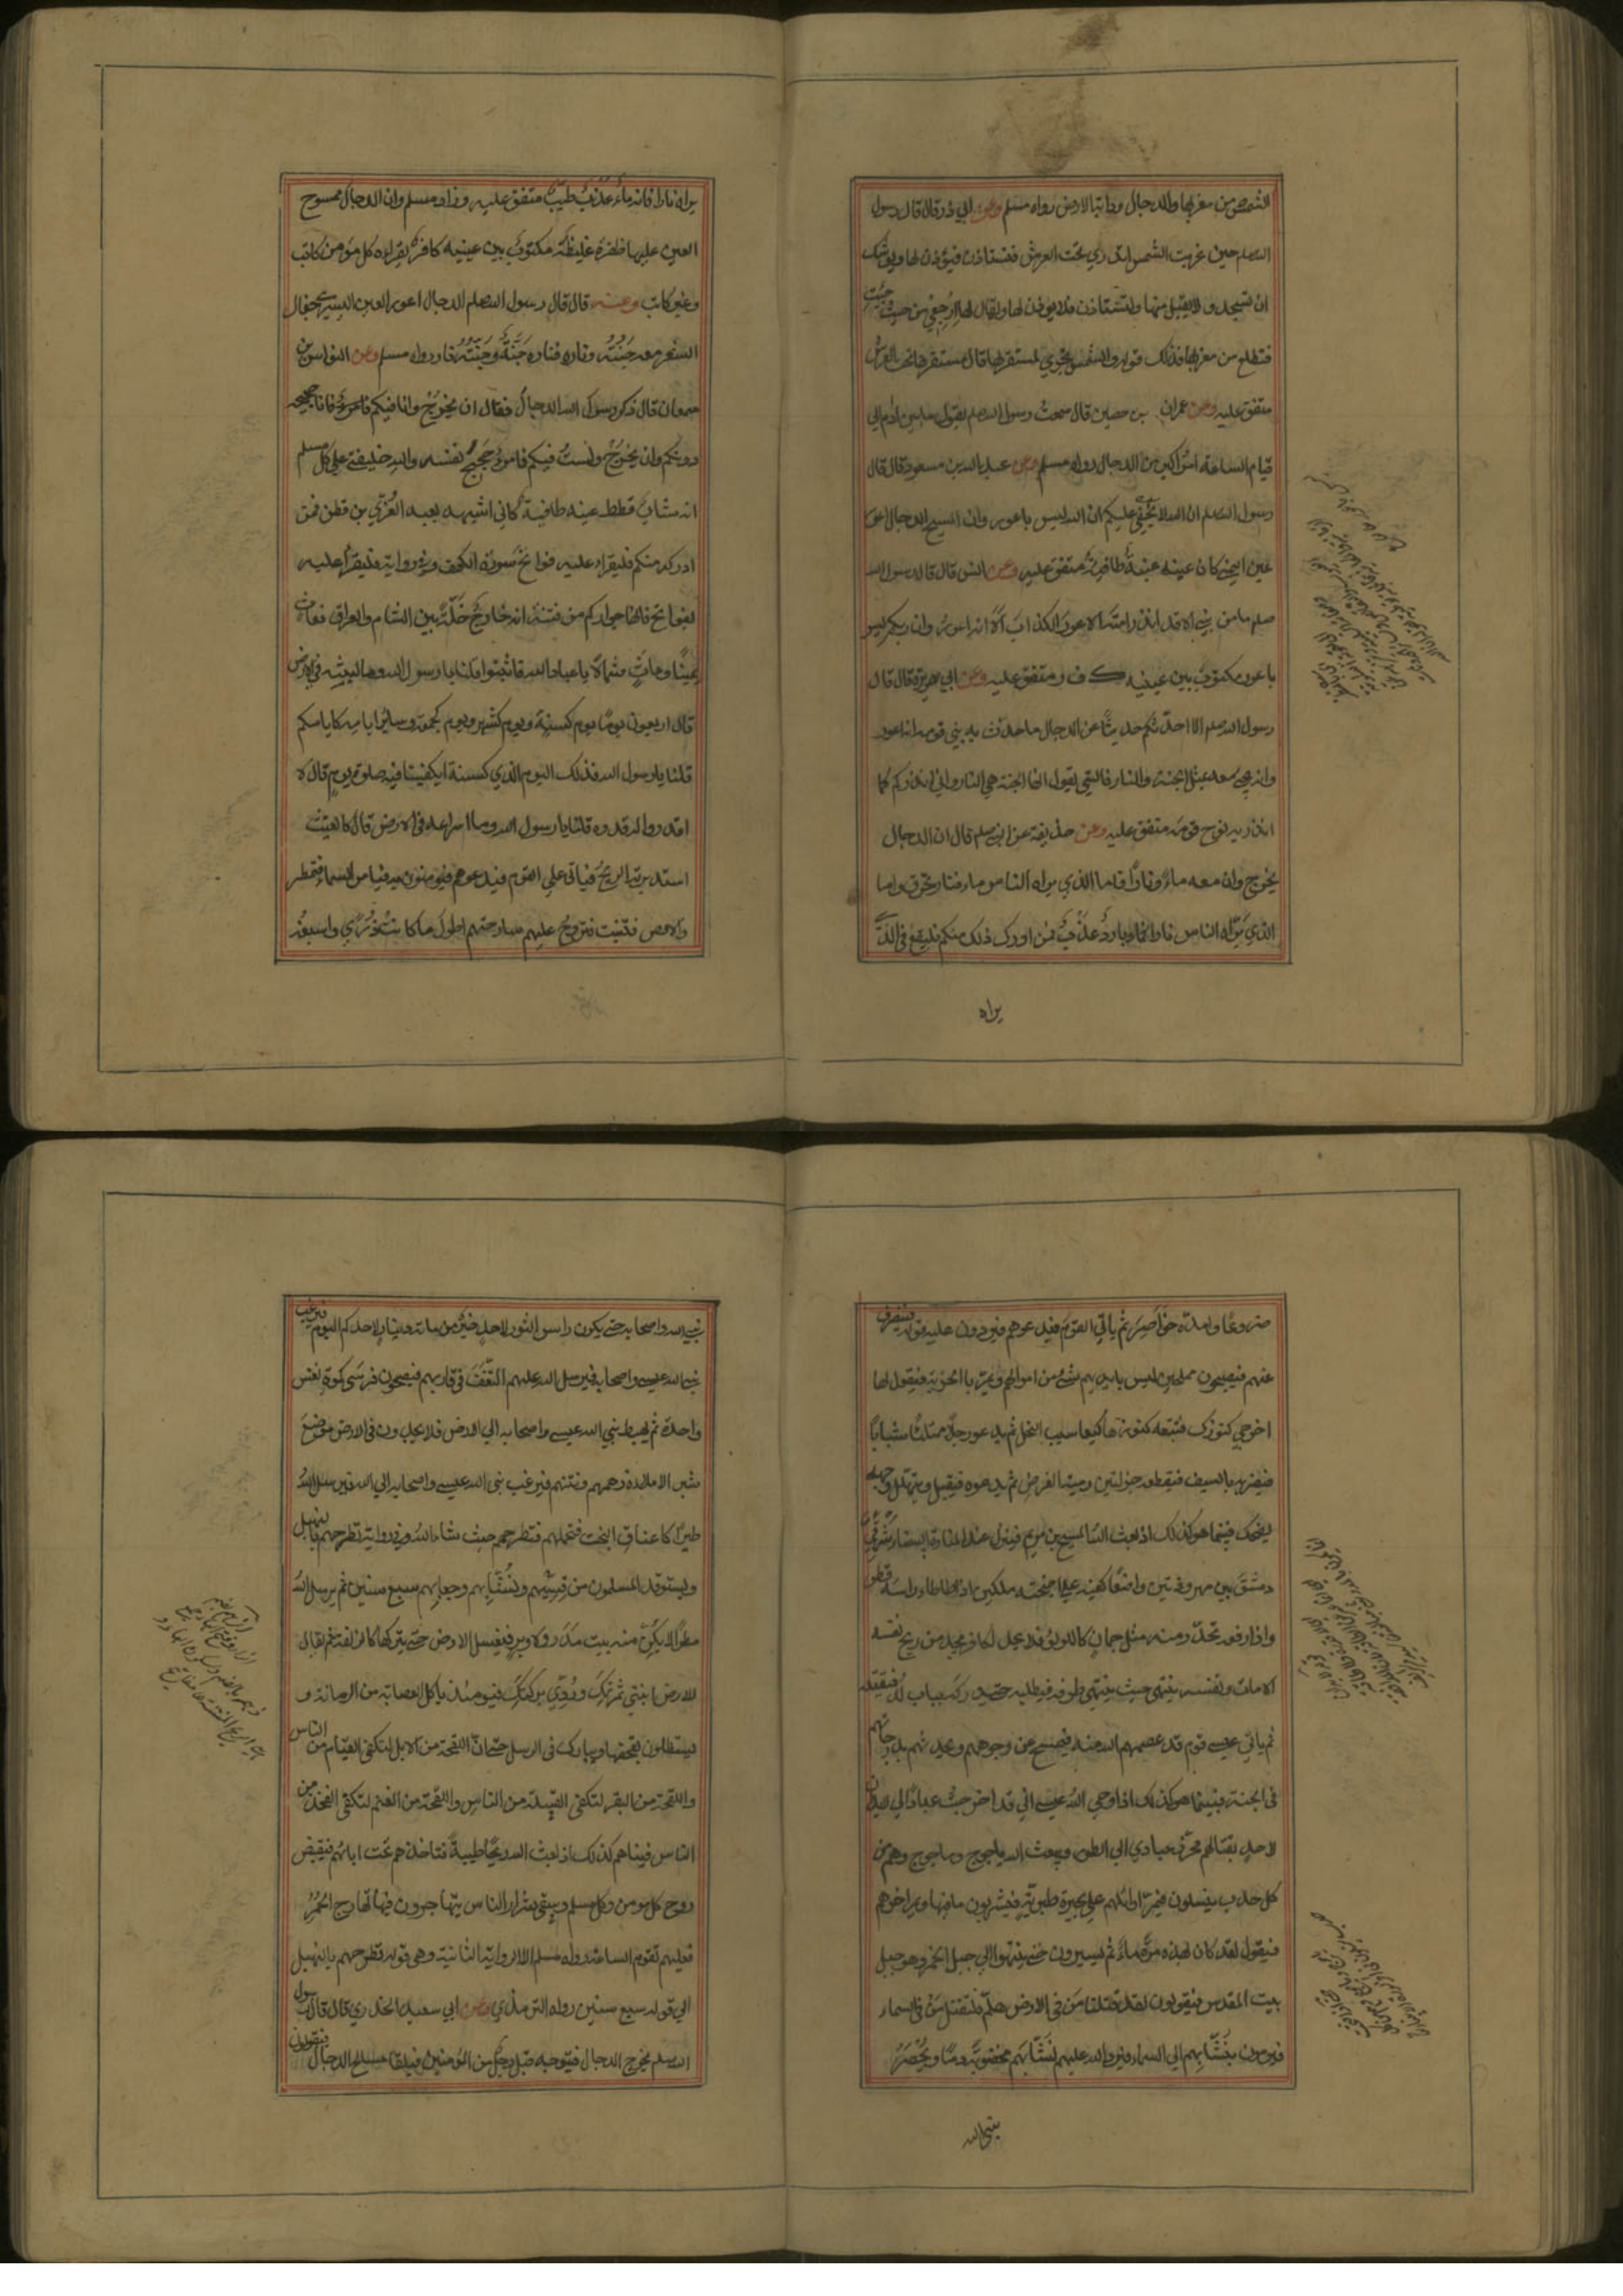 الشمس من مغربها والدجال ودابة الارض رواه مسلم وعن ابي ذر قال قال رسول
الله صلم حين غربت الشمس اتدري تحت العرش فتستاذن فيؤذن لها ويوشك
ان تسجد ولا يقبل منها وتستاذن فلا يوذن لها ويقال لها ارجعي من حيث جئت
فتطلع من مغربها فذلك قوله والشمس تجري لمستقر لها قال مستقرها تحت العرش
متفق عليه وعن عمران بن حصين قال سمعت رسول الله صلم يقول ما بين ادم الي
قيام الساعة امر اكبر من الدجال رواه مسلم وعن عبد الله بن مسعود قال قال
رسول الله صلم ان الله لا يخفي عليكم ان الله ليس باعور وان المسيح الدجال اعور
عين اليمني كان عينه عنبة طافية متفق عليه وعن انس قال قال رسول الله
صلم ما من نبي الا قد انذر امته الاعور الكذاب الا انه اعور وان ربكم ليس
باعور مكتوب بين عينيه ك ف ر متفق عليه وعن ابي هريرة قال قال
رسول الله صلم الا احدثكم حديثا عن الدجال ما حدث به نبي قومه انه اعور
وانه يجي معه بمثل الجنة والنار فالتي يقول انها الجنة هي النار واني انذركم كما
انذر به نوح قومه متفق عليه وعن حذيفة عن النبي صلم قال ان الدجال
يخرج وان معه ماء ونارا فاما الذي يراه الناس ماء فنار تحرق واما
الذي يراه الناس نارا فماء بارد عذب فمن ادرك ذلك منكم فليقع في الذي
يراه
يراه نارا فانه ماء عذب طيب متفق عليه وزاد مسلم وان الدجال ممسوح
العين عليها ظفرة غليظة مكتوب بين عينيه كافر يقراه كل مومن كاتب
وغير كاتب وعنه قال قال رسول الله صلم الدجال اعور العين اليسري جفال
الشعر معه جنته وناره فناره جنة وجنته نار رواه مسلم وعن النواس بن
سمعان قال ذكر رسول الله الدجال فقال ان يخرج وانا فيكم فانا حجيجه
دونكم وان يخرج ولست فيكم فامرء حجيج نفسه والله خليفتي علي كل مسلم
انه شاب قطط عينه طافية كاني اشبهه بعبد العزي بن قطن فمن
ادركه منكم فليقراء عليه فواتح سورة الكهف وفي رواية فليقرا عليه
بفواتح فانها جواركم من فتنته انه خارج خلة بين الشام والعراق فعاث
يمينا وعاث شمالا يا عباد الله فاثبتوا قلنا يا رسول الله وما لبثه في الارض
قال اربعون يوما يوم كسنة ويوم كشهر ويوم كجمعة وساير ايامه كايامكم
قلنا يا رسول الله فذلك اليوم الذي كسنة ايكفينا فيه صلوة يوم قال لا
اقدروا له قدره قلنا يا رسول الله وما اسراعه في الارض قال كالغيث
استدبرته الريح فياتي علي القوم فيدعوهم فيومنون به فيامر السماء فتمطر
والارض فتنبت فتروح عليهم سارحتهم اطول ما كانت ذري واسبغه
ضروعا وامده خواصر ثم ياتي القوم فيدعوهم فيردون عليه قوله فينصرف
عنهم فيصبحون ممحلين ليس بايديهم شيء من اموالهم ويمر بالخربة فيقول لها
اخرجي كنوزك فتتبعه كنوزها كيعاسيب النخل ثم يدعو رجلا ممتلئا شبابا
فيضربه بالسيف فيقطعه جزلتين رمية الغرض ثم يدعوه فيقبل ويتهلل وجهه
يضحك فبينما هو كذلك اذ بعث الله المسيح بن مريم فينزل عند المنارة البيضاء شرقي
دمشق بين مهروذتين واضعا كفيه علي اجنحة ملكين اذا طاطا راسه قطر
واذا رفعه تحدر منه مثل جمان كاللولؤ فلا يحل لكافر يجد من ريح نفسه
الا مات ونفسه ينتهي حيث ينتهي طرفه فيطلبه حتي يدركه بباب لد فيقتله
ثم ياتي عيسي قوم قد عصمهم الله منه فيمسح عن وجوههم ويحدثهم بدرجاتهم
في الجنة فبينما هو كذلك اذ اوحي الله عيسي اني قد اخرجت عبادا لي لا يدان
لاحد بقتالهم فحرز عبادي الي الطور ويبعث الله ياجوج وماجوج وهم من
كل حدب ينسلون فيمر اوائلهم علي بحيرة طبرية فيشربون ما فيها ويمر اخرهم
فيقول لقد كان لهذه مرة ماء ثم يسيرون حتي ينتهوا الي جبل الخمر وهو جبل
بيت المقدس فيقولون لقد قتلنا من في الارض هلم فلنقتل من في السماء
فيرمون بنشابهم الي السماء فيرد الله عليهم نشابهم مخضوبة دما ويحصر
نبي الله
نبي الله واصحابه حتي يكون راس الثور لاحدهم خير من مائة دينار لاحدكم اليوم فيرغب
نبي الله عيسي واصحابه فيرسل الله عليهم النغف في رقابهم فيصبحون فرسي كموت نفس
واحدة ثم يهبط نبي الله عيسي واصحابه الي الارض فلا يجدون في الارض موضع
شبر الا ملاءه زهمهم ونتنهم فيرغب نبي الله عيسي واصحابه الي الله فيرسل الله
طيرا كاعناق البخت فتحملهم فتطرحهم حيث شاء الله وفي رواية تطرحهم بالنهبل
ويستوقد المسلمون من قسيهم ونشابهم وجعابهم سبع سنين ثم يرسل الله
مطرا لا يكن منه بيت مدر ولا وبر فيغسل الارض حتي يتركها كالزلفة ثم يقال
للارض انبتي ثمرتك وردي بركتك فيومئذ ياكل العصابة من الرمانة و
يستظلون بقحفها ويبارك في الرسل حتي ان اللقحة من الابل لتكفي الفيام من الناس
واللقحة من البقر لتكفي القبيلة من الناس واللقحة من الغنم لتكفي الفخذ من
الناس فبينا هم كذلك اذ بعث الله ريحا طيبة فتاخذهم تحت اباطهم فيقبض
روح كل مومن وكل مسلم ويبقي شرار الناس يتهارجون فيها تهارج الحمر
فعليهم تقوم الساعة رواه مسلم الا الرواية الثانية وهي قوله تطرحهم بالنهبل
الي قوله سبع سنين رواه الترمذي وعن ابي سعيد الخدري قال قال رسول
الله صلم يخرج الدجال فيتوجه قبله رجل من المؤمنين فيلقاه مسالح الدجال فيقولون